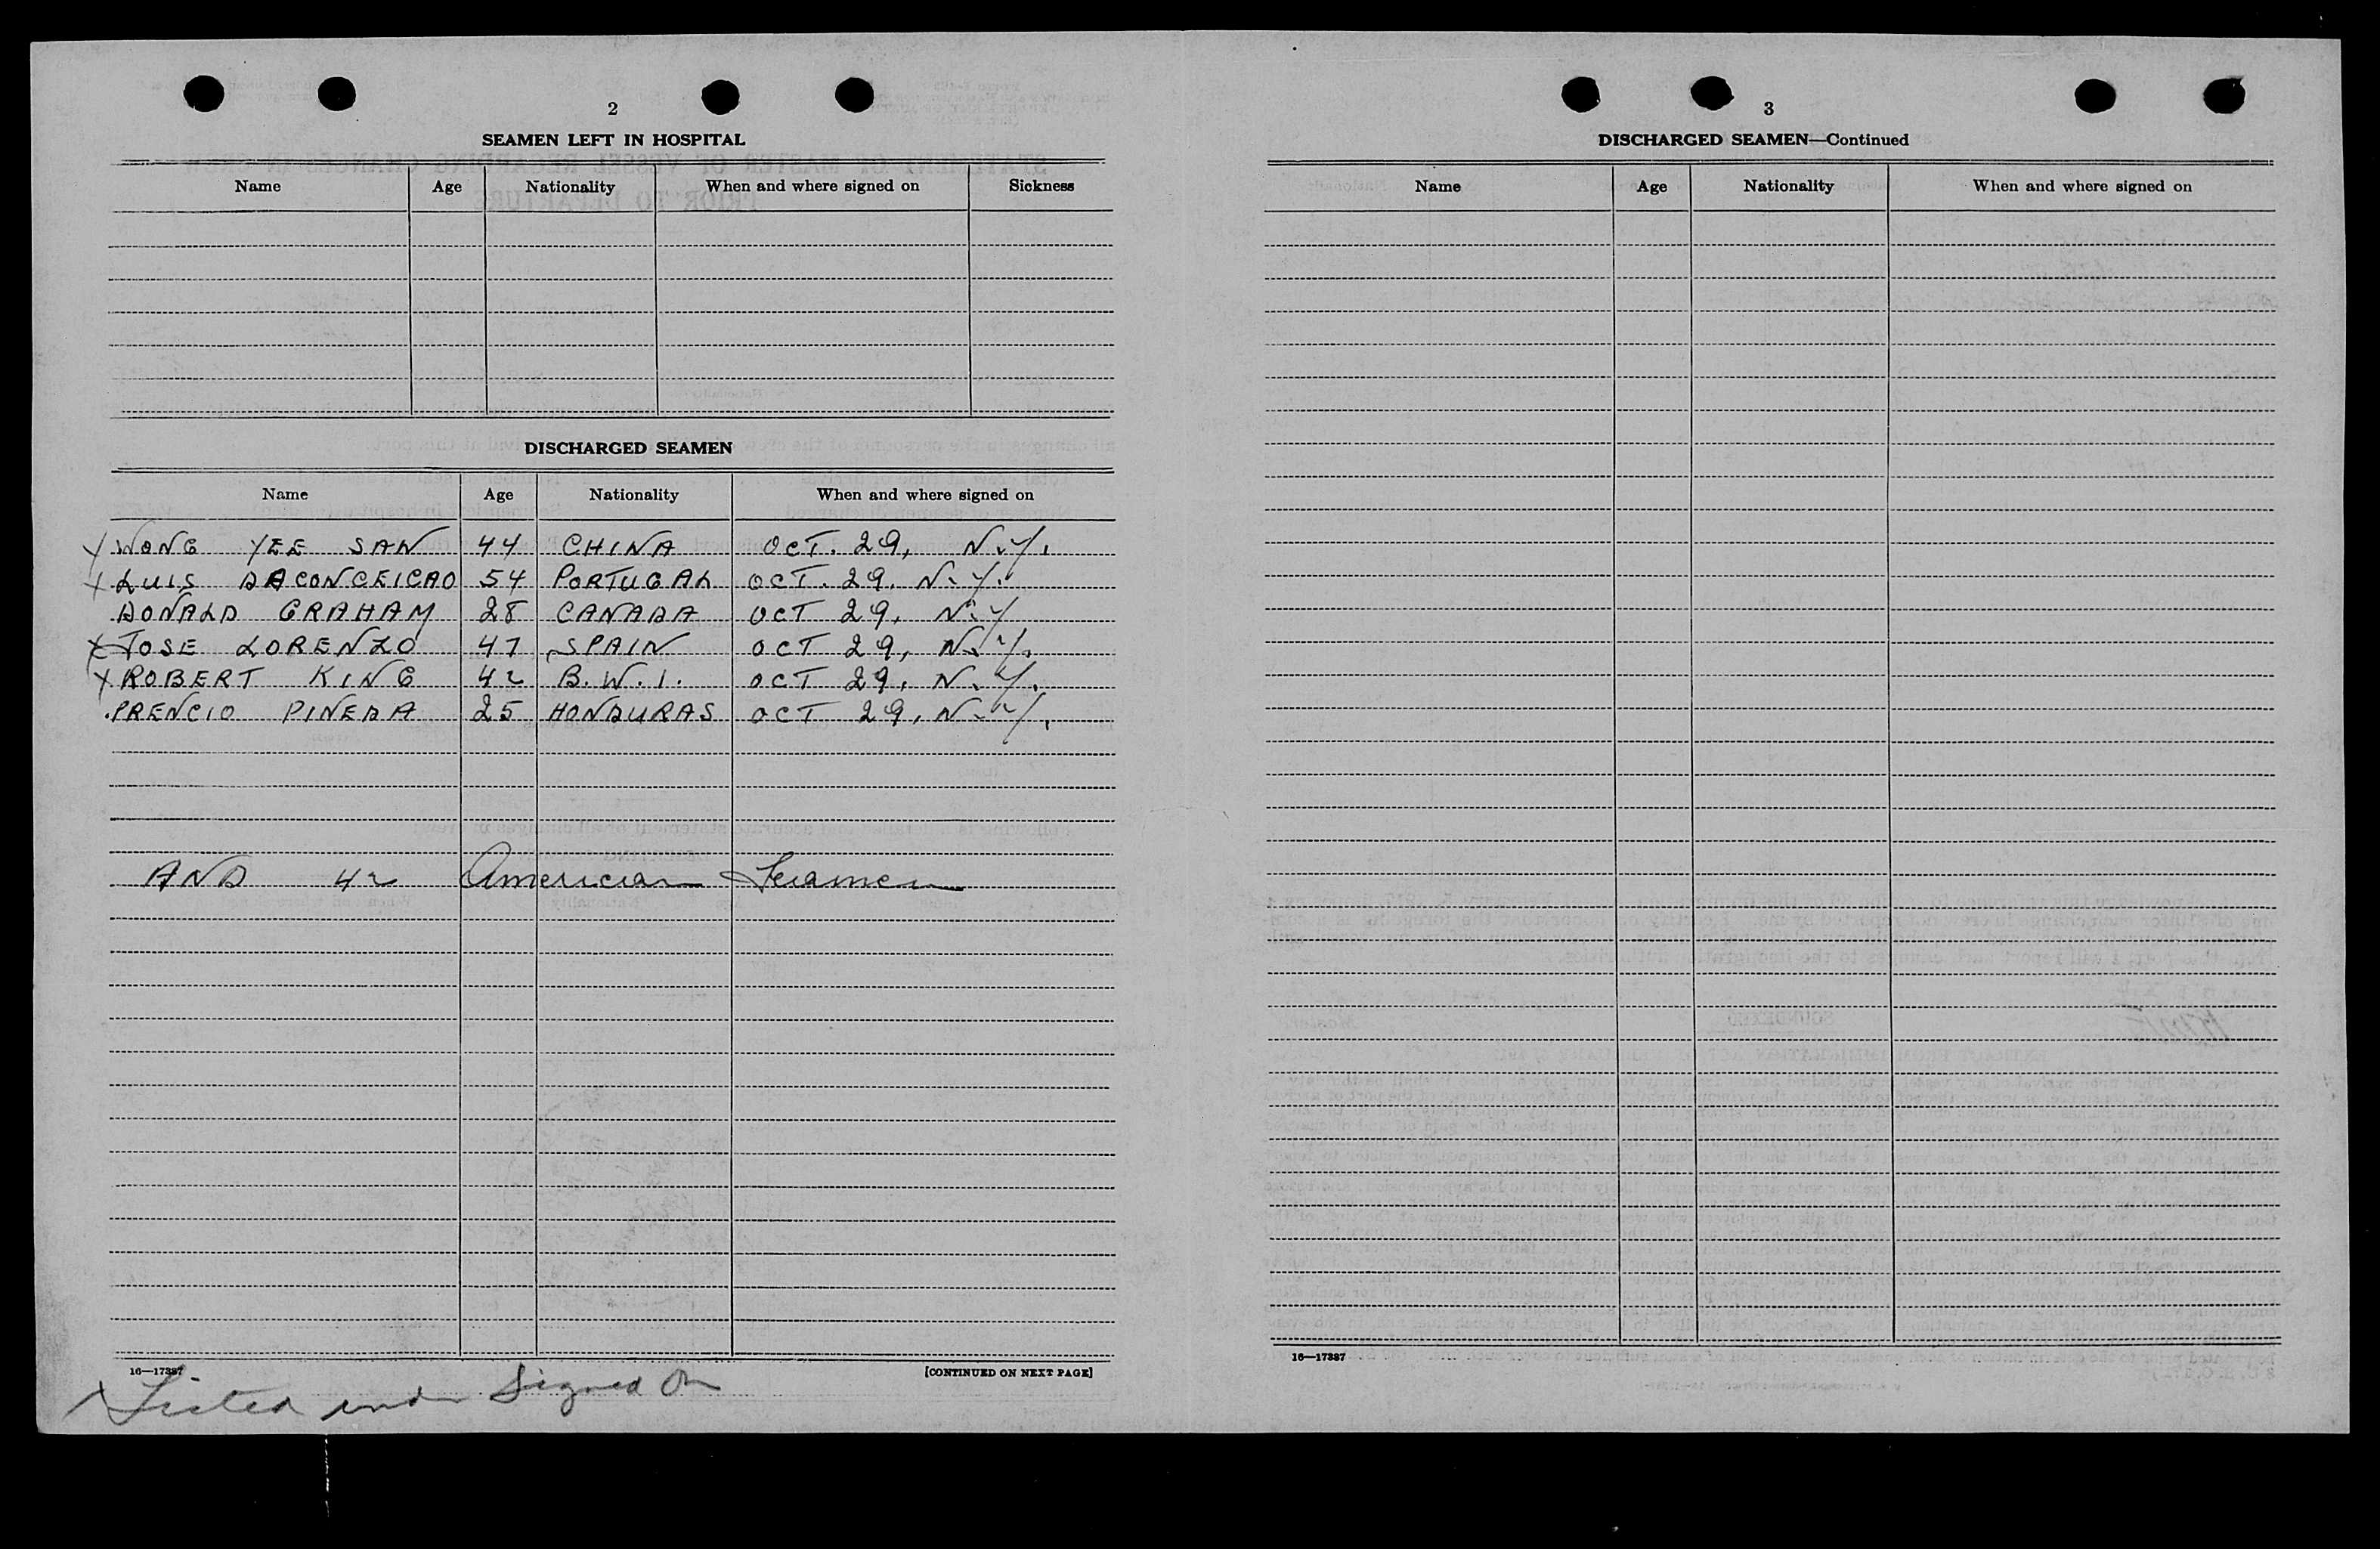 2
SEAMEN LEFT IN HOSPITAL
Name Age Nationality When and where signed on Sickness
DISCHARGED SEAMEN
Name Age Nationality When and where signed on
X WONG YEE SAN 44 CHINA OCT. 29, N.Y.
X LUIS DACONCEICAO 54 PORTUGAL OCT. 29. N.Y.
DONALD GRAHAM 28 CANADA OCT 29, N.Y
X JOSE LORENZO 47 SPAIN OCT 29, N.Y.
X ROBERT KING 42 B.W.I. OCT 29, N.Y.
PRENCIO PINEDA 25 HONDURAS OCT 29, N.Y.
AND 42 American Seamen
16—17387 [CONTINUED ON NEXT PAGE]
X Listed under Signed On
3
DISCHARGED SEAMEN—Continued
Name Age Nationality When and where signed on
16—17387